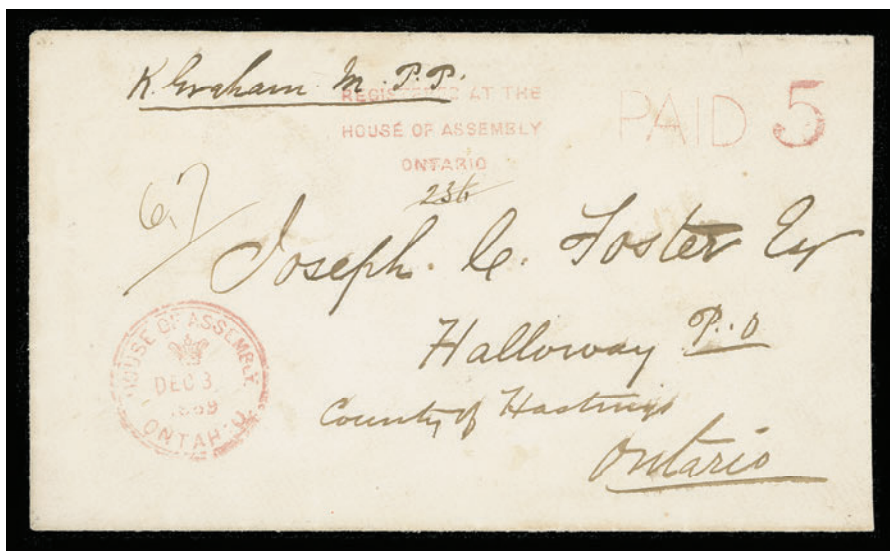 K. Graham M.P.P.
REGISTERED AT THE
HOUSE OF ASSEMBLY
ONTARIO
PAID 5
236
6.7
Joseph. C. Foster Esq
Halloway P.O
County of Hastings
Ontario
HOUSE OF ASSEMBLY
DEC 3
1869
ONTARIO